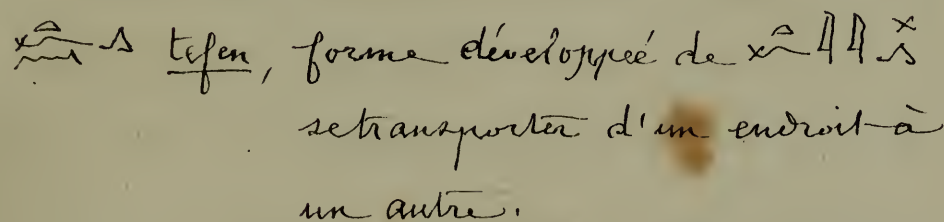 tefen, forme développeé de
se transporter d'un endroit à
un autre.